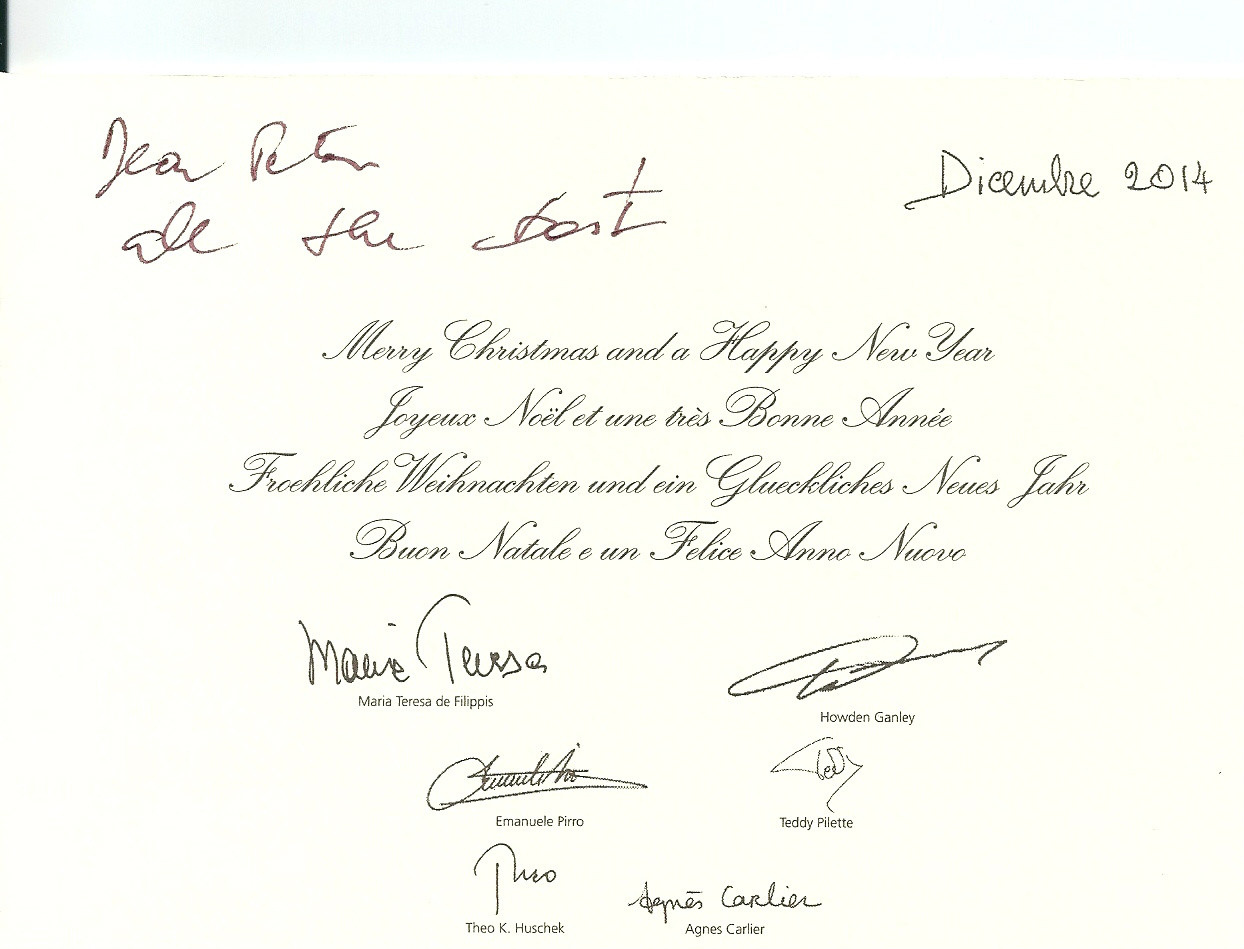 Dear Peter
all the best
Dicembre 2014
Merry Christmas and a Happy New Year
Joyeux Noël et une très Bonne Année
Froehliche Weihnachten und ein Glueckliches Neues Jahr
Buon Natale e un Felice Anno Nuovo
Maria Teresa
Maria Teresa de Filippis
Howden Ganley
Emanuele Pirro
Teddy
Teddy Pilette
Theo
Theo K. Huschek
Agnès Carlier
Agnes Carlier